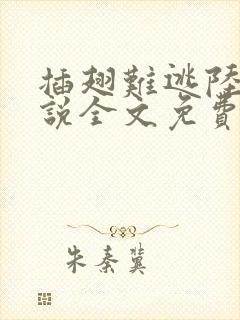 插翅難逃陸
說全文免費
朱秦冀